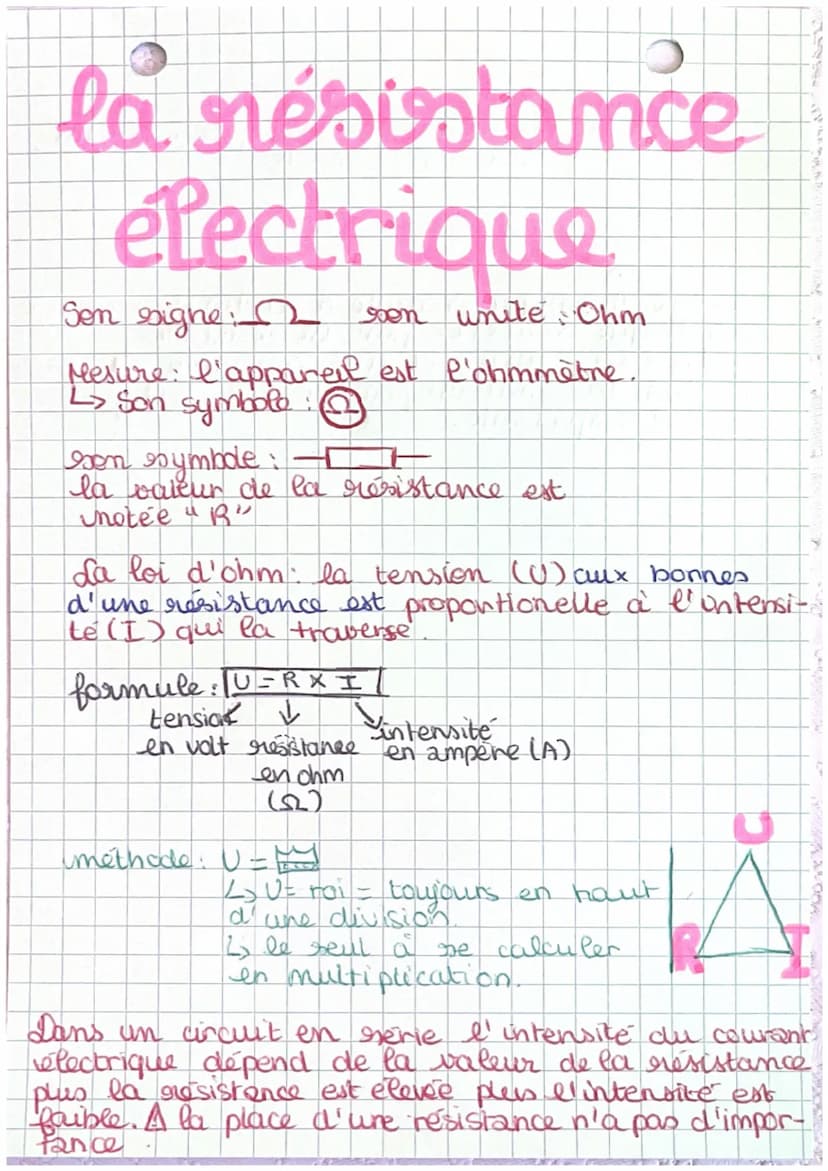 la résistance
électrique
Son signe : Ω son unité : Ohm
Mesure : l'appareil est l'ohmmètre.
↳ Son symbole : Ω
son symbole :
la valeur de la résistance est
notée " R "
La loi d'ohm : la tension (U) aux bornes
d'une résistance est proportionelle à l'intensi-
té (I) qui la traverse.
formule : U = R x I
tension ↓ intensité
en volt résistance en ampère (A)
en ohm
(Ω)
U
méthode : U =
↳ U = roi = toujours en haut
d'une division.
R I
↳ le seul à se calculer
en multiplication.
Dans un circuit en série l'intensité du courant
électrique dépend de la valeur de la résistance
plus la résistance est élevée plus l'intensité est
faible. ⚠ la place d'une résistance n'a pas d'impor-
tance.